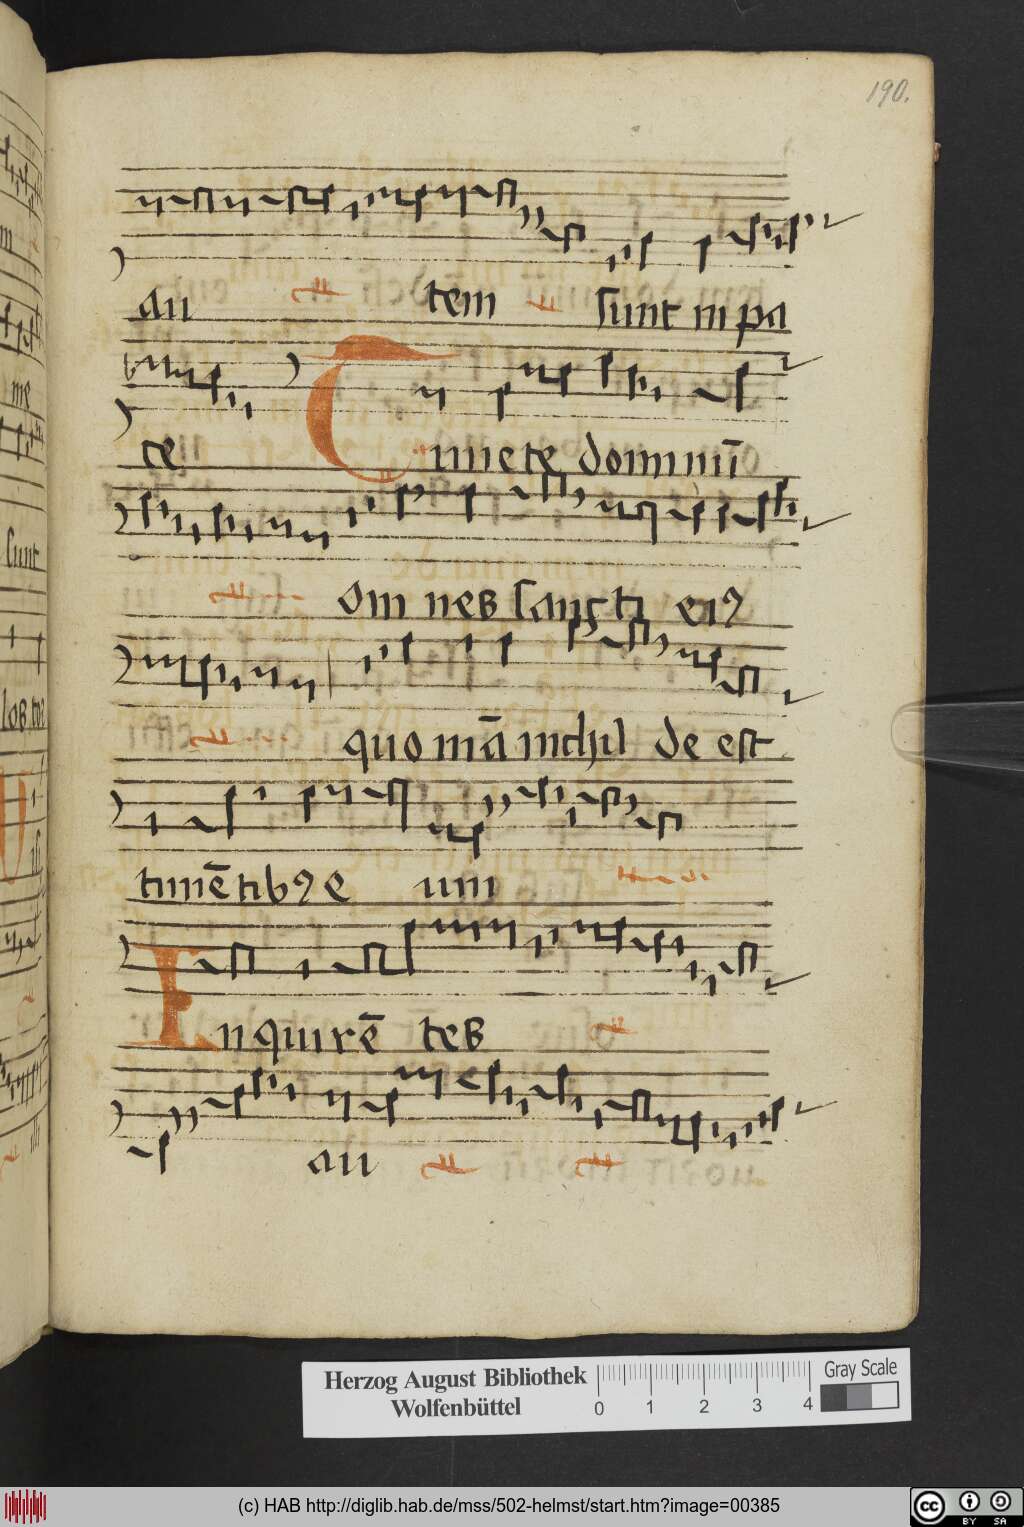 190.
au tem sunt in pa
ce Timete dominū
om nes sancti ei9
quo niā nichil de est
timētib9 e um
Inquirē tes
au
Herzog August Bibliothek
Wolfenbüttel
0 1 2 3 4
Gray Scale
(c) HAB http://diglib.hab.de/mss/502-helmst/start.htm?image=00385
cc BY SA